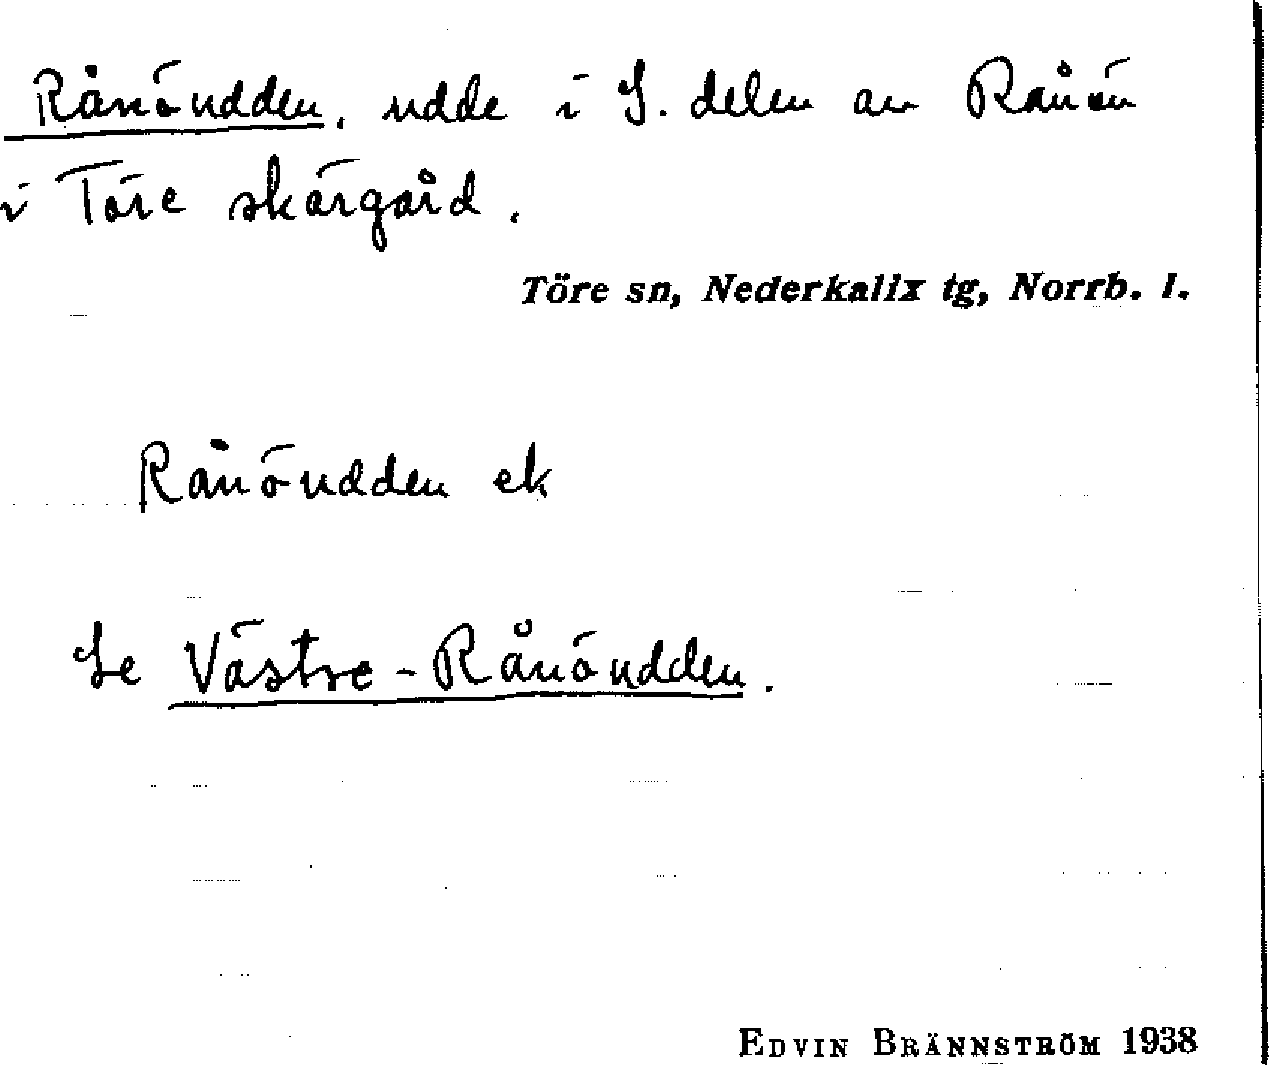 Rånöudden, udde i S. delen av Rånön
i Töre skärgård.
Töre sn, Nederkalix tg, Norrb. l.
Rånöudden ek
Se Västre-Rånöudden.
EDVIN BRÄNNSTRÖM 1938